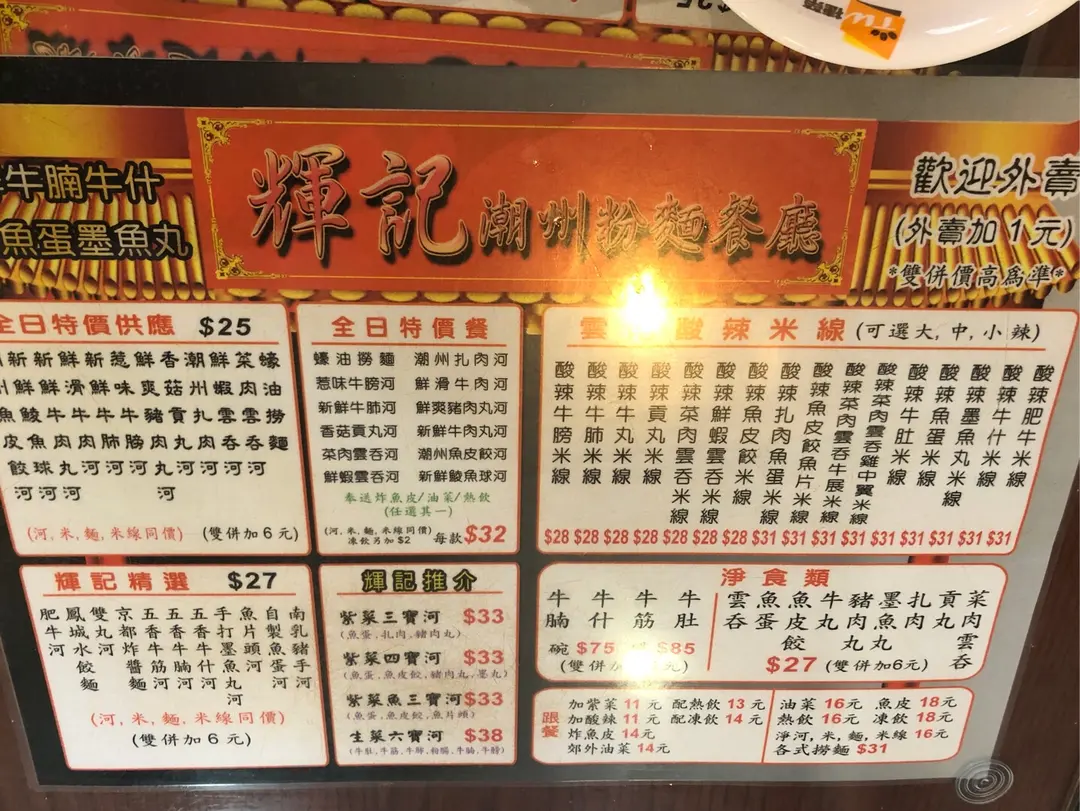 牛腩牛什
魚蛋墨魚丸
輝記潮州粉麵餐廳
歡迎外賣
(外賣加1元)
*雙併價高為準*
全日特價供應 $25
新鮮鯪魚球河
新鮮牛肉丸河
鮮滑牛肉河
新鮮牛肺河
惹味牛膀河
鮮爽豬肉丸河
香菇貢丸河
潮州扎肉河
鮮蝦雲吞河
菜肉雲吞河
蠔油撈麵
(河,米,麵,米線同價) (雙併加6元)
全日特價餐
蠔油撈麵 潮州扎肉河
惹味牛膀河 鮮滑牛肉河
新鮮牛肺河 鮮爽豬肉丸河
香菇貢丸河 新鮮牛肉丸河
菜肉雲吞河 潮州魚皮餃河
鮮蝦雲吞河 新鮮鯪魚球河
奉送炸魚皮/油菜/熱飲
(任選其一)
(河,米,麵,米線同價)
凍飲另加$2 每款$32
雲 酸辣米線 (可選大,中,小辣)
酸辣牛膀米線 $28
酸辣牛肺米線 $28
酸辣牛丸米線 $28
酸辣貢丸米線 $28
酸辣菜肉雲吞米線 $28
酸辣鮮蝦雲吞米線 $28
酸辣魚皮餃米線 $28
酸辣扎肉魚蛋米線 $31
酸辣魚皮餃魚片米線 $31
酸辣菜肉雲吞牛展米線 $31
酸辣菜肉雲吞雞中翼米線 $31
酸辣牛肚米線 $31
酸辣魚蛋米線 $31
酸辣墨魚丸米線 $31
酸辣牛什米線 $31
酸辣肥牛米線 $31
輝記精選 $27
肥牛河
鳳城水餃麵
雙丸河
京都炸醬麵
五香牛筋河
五香牛腩河
五香牛什河
手打墨魚丸河
魚片頭河
自製魚蛋河
南乳豬手河
(河,米,麵,米線同價)
(雙併加6元)
輝記推介
紫菜三寶河 $33
(魚蛋,扎肉,豬肉丸)
紫菜四寶河 $33
(魚蛋,魚皮餃,豬肉丸,墨丸)
紫菜魚三寶河 $33
(魚蛋,魚皮餃,魚片頭)
生菜六寶河 $38
淨食類
牛腩 牛什 牛筋 牛肚
碗 $75 $85
(雙併加 元)
雲吞
魚蛋
魚皮餃
牛丸
豬肉丸
墨魚丸
扎肉
貢丸
菜肉雲吞
$27 (雙併加6元)
跟餐
加紫菜 11元 配熱飲 13元
加酸辣 11元 配凍飲 14元
炸魚皮 14元
郊外油菜 14元
油菜 16元 魚皮 18元
熱飲 16元 凍飲 18元
淨河,米,麵,米線 16元
各式撈麵 $31